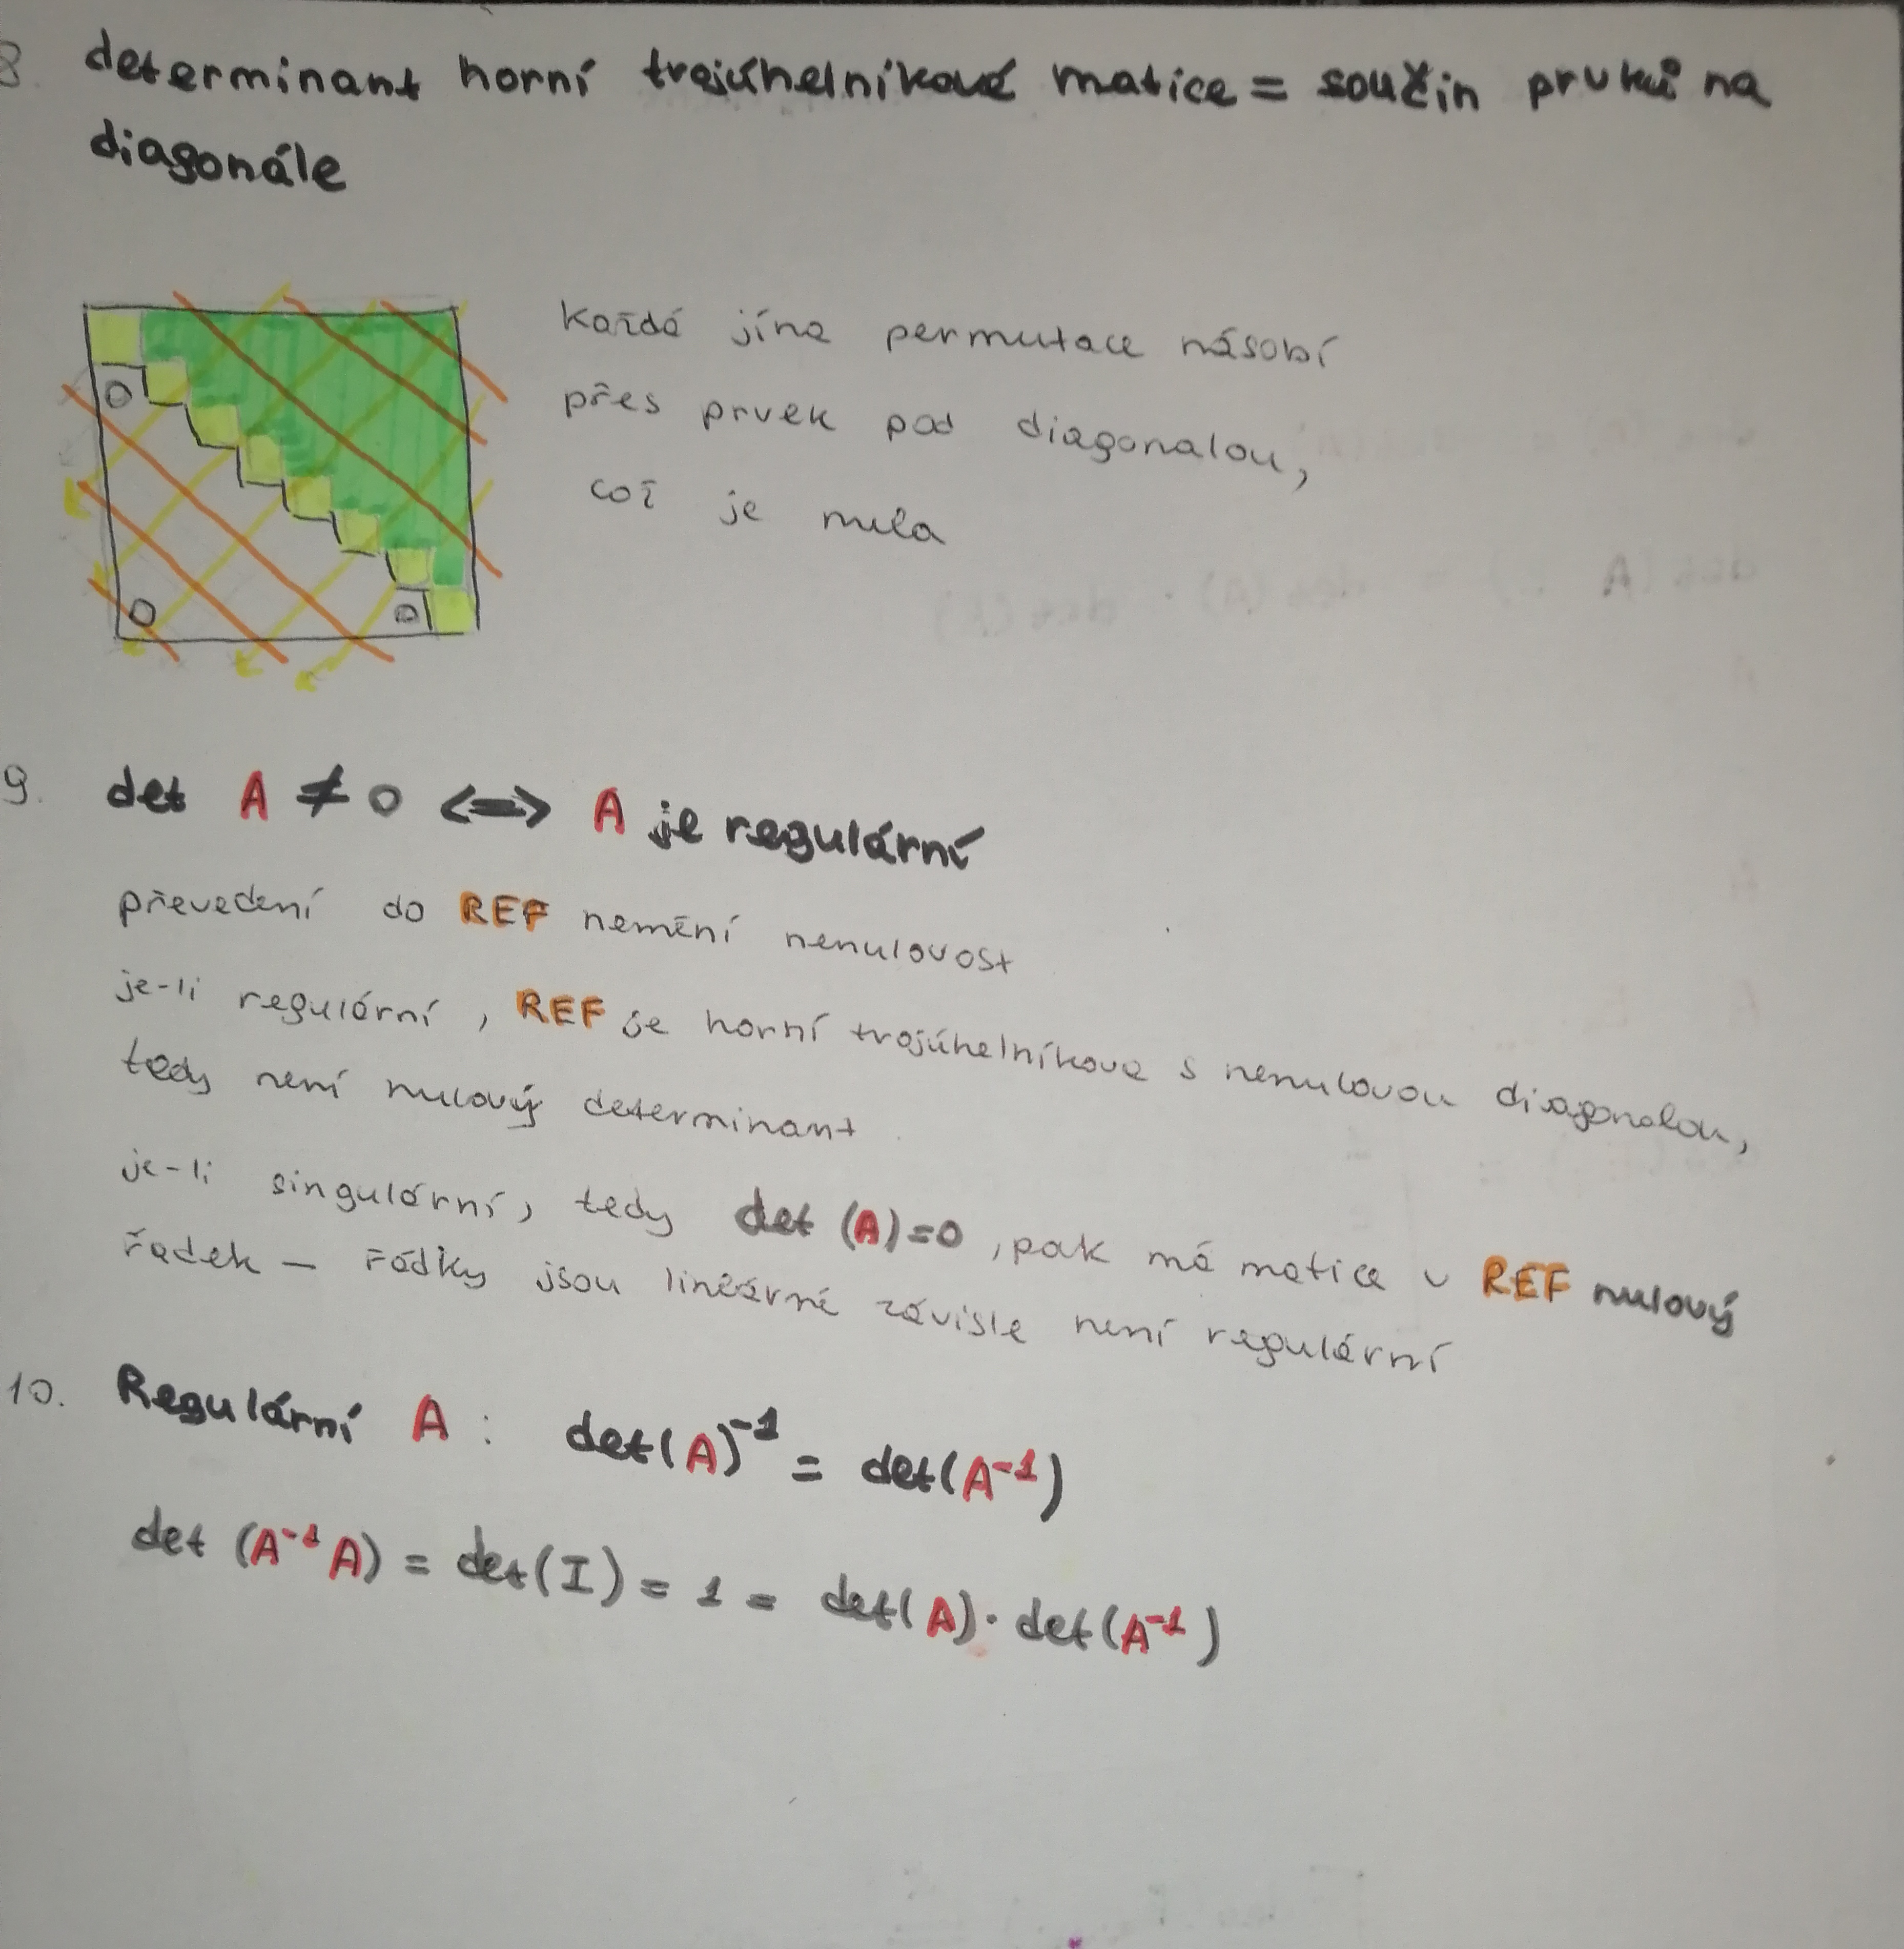 8. determinant horní trojúhelníkové matice = součin prvků na
diagonále
0
0
0
Každá jína permutace násobí
přes prvek pod diagonalou,
což je nula
9. det A ≠ 0 <=> A je regulární
převedení do REF nemění nenulovost
je-li regulární, REF je horní trojúhelníkova s nenulovou diagonalou,
tedy není nulový determinant
je-li singulární, tedy det (A)=0, pak má matice v REF nulový
řadek – řádky jsou lineárně závisle není regulární
10. Regulární A : det(A)⁻¹ = det(A⁻¹)
det (A⁻¹A) = det(I) = 1 = det(A) · det(A⁻¹)